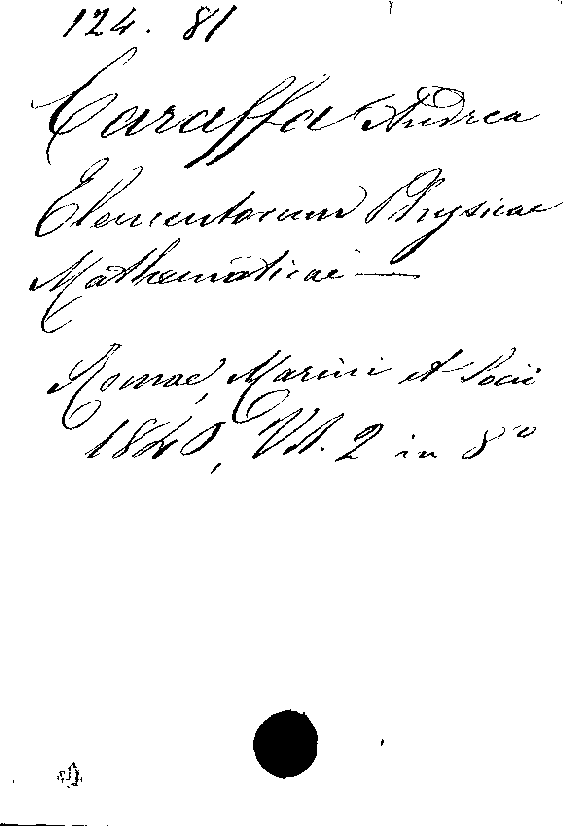 124. 81
Caraffa Andrea
Elementorum Physicae
Mathematicae —
Romae, Marini et Socii
1840, Vol. 2 in 8º